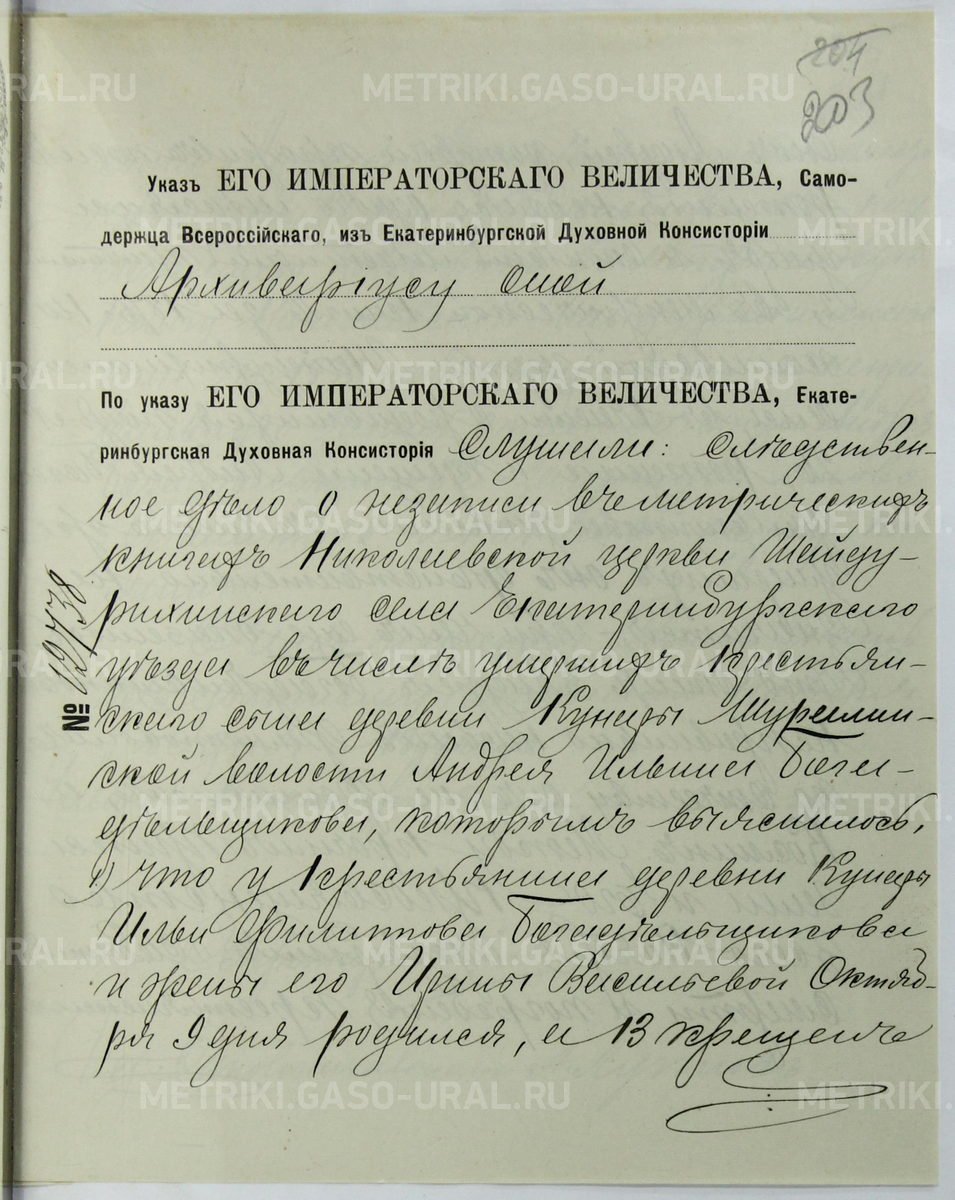 204
203
Указъ ЕГО ИМПЕРАТОРСКАГО ВЕЛИЧЕСТВА, Само-
держца Всероссійскаго, изъ Екатеринбургской Духовной Консисторіи
Архиваріусу оной
По указу ЕГО ИМПЕРАТОРСКАГО ВЕЛИЧЕСТВА, Екате-
ринбургская Духовная Консисторія Слушали: слѣдствен-
ное дѣло о незаписи въ метрическихъ
книгахъ Николаевской церкви Шейду-
рихинскаго села Екатеринбургскаго
уѣзда въ числѣ умершихъ крестьян-
№ 12738
скаго сына деревни Кунары Мурзин-
ской волости Андрея Ильина Бога-
дѣльщикова, которымъ выяснилось,
1) что у крестьянина деревни Кунары
Ильи Филиппова Богадѣльщикова
и жены его Ирины Васильевой Октяб-
ря 9 дня родился, а 13 крещенъ
METRIKI.GASO-URAL.RU